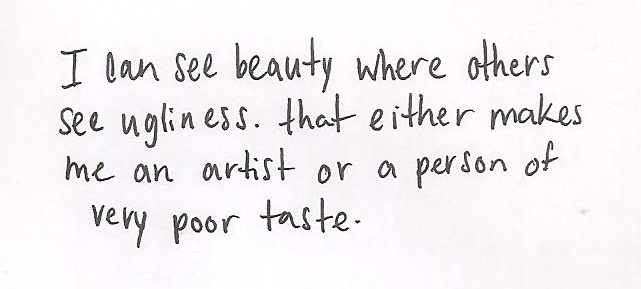 I can see beauty where others
see ugliness. that either makes
me an artist or a person of
very poor taste.